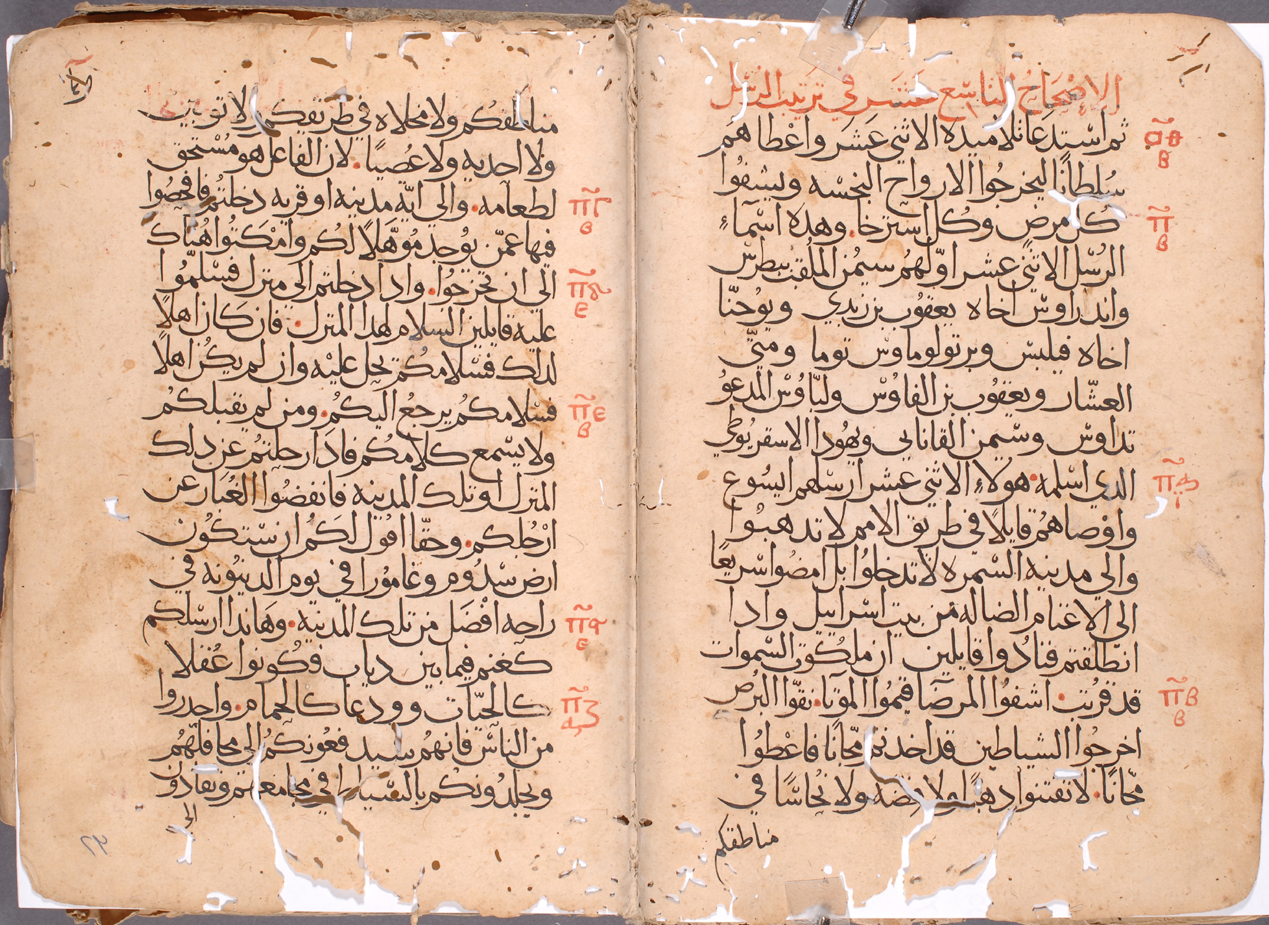 الاصحاح التاسع عشر في ترتيب الرسل
ثم استدعا تلاميده الاثني عشر واعطاهم
ⲟ̅ⲑ̅
ⲃ
سُلطانًا ليخرجوا الارواح النجسه ويشفُوا
كل مرض وكُل استرخا. وهده اسْماءُ
ⲡ̅
ⲃ
الرُسُل الاثنَي عشر اوّلهُم سيمُن المُلقب ببطرس
واندراوس اخاه يعقُوب بن زبدي ويوُحنّا
اخاه فيلبس وبرتولوماوس توما ومتيَّ
العشّار ويعقوب بن الفاوُس ولبّاوُس المدعوُ
تداوس وسيمن القاناني ويهُودا الاسقريُوطي
الدي اسلمه. هولاءِ الاثني عشر ارسلهم ايسُوع
واوْصاهمُ قايلًا في طريق الامم لا تدهبُوا
والي مدينه السمره لا تدخلوُا بل امضُوا سريعًا
الي الاغنام الضاله من بيت اسراييل وادا
انطلقتم فنادُوا قايلين ان ملكوُت السموات
قد قرُبَت. اشفوُا المرضَا قيموا الموتا. نقّوا البرُص
ⲡ̅ⲃ̅
ⲃ
اخرجوُا الشياطين قد اخدتم مجّانًا فاعْطوُا
مجّانًا. لا تقتنوا دهبًا ولا فضه ولا نُحاسًا في
مناطقكم
مناطقكُم ولا مخلاه في طريقكم ولا توبين
ولا احديه ولا عُصيًا. لان الفاعل هو مُسْتحق
لطعامه. والي ايّة مدينه او قريه دخلتُم فافحصُوا
ⲡ̅ⲅ̅
ⲃ
فيها عمّن يوُجد مُوَهّلًا لكُم وامْكتوُا هُناك
الي ان تخرجُوا. وادا دخلتم الي منزل فسَلمُّوا
ⲡ̅ⲇ̅
ⲉ
عليه قايلين السلام لهدا المنزل. فان كان اهلًا
لدلك فسَلامكُم يحل عليْه وان لم يكُن اهلًا
فسَلامكُم يرجعُ اليكُم. ومن لم يقبلكُم
ⲡ̅ⲉ̅
ⲃ
ولا يسْمع كلامكُم فادا رحلتمُ عن دلك
المنزل او تلك المدينه فانفضُوا الغُبار عن
ارْجُلكم. وحقّا اقوُل لكُم ان سَتكوُن
ارض سدُوم وغاموُرا في يوم الدينوُنه في
راحه افضَل من تلك المدينه. وهَاندا ارسَلكم
كغنم فيما بين دياب فكُونوا عُقلا
كالحيّات وودعا كالحمام. واحدروا
ⲡ̅ⲍ̅
من الناس فانهُم سيدفعُونكمُ الي محافلهُم
ويجلدُونكم بالسّياط في مجامعهم وتقادون
الي